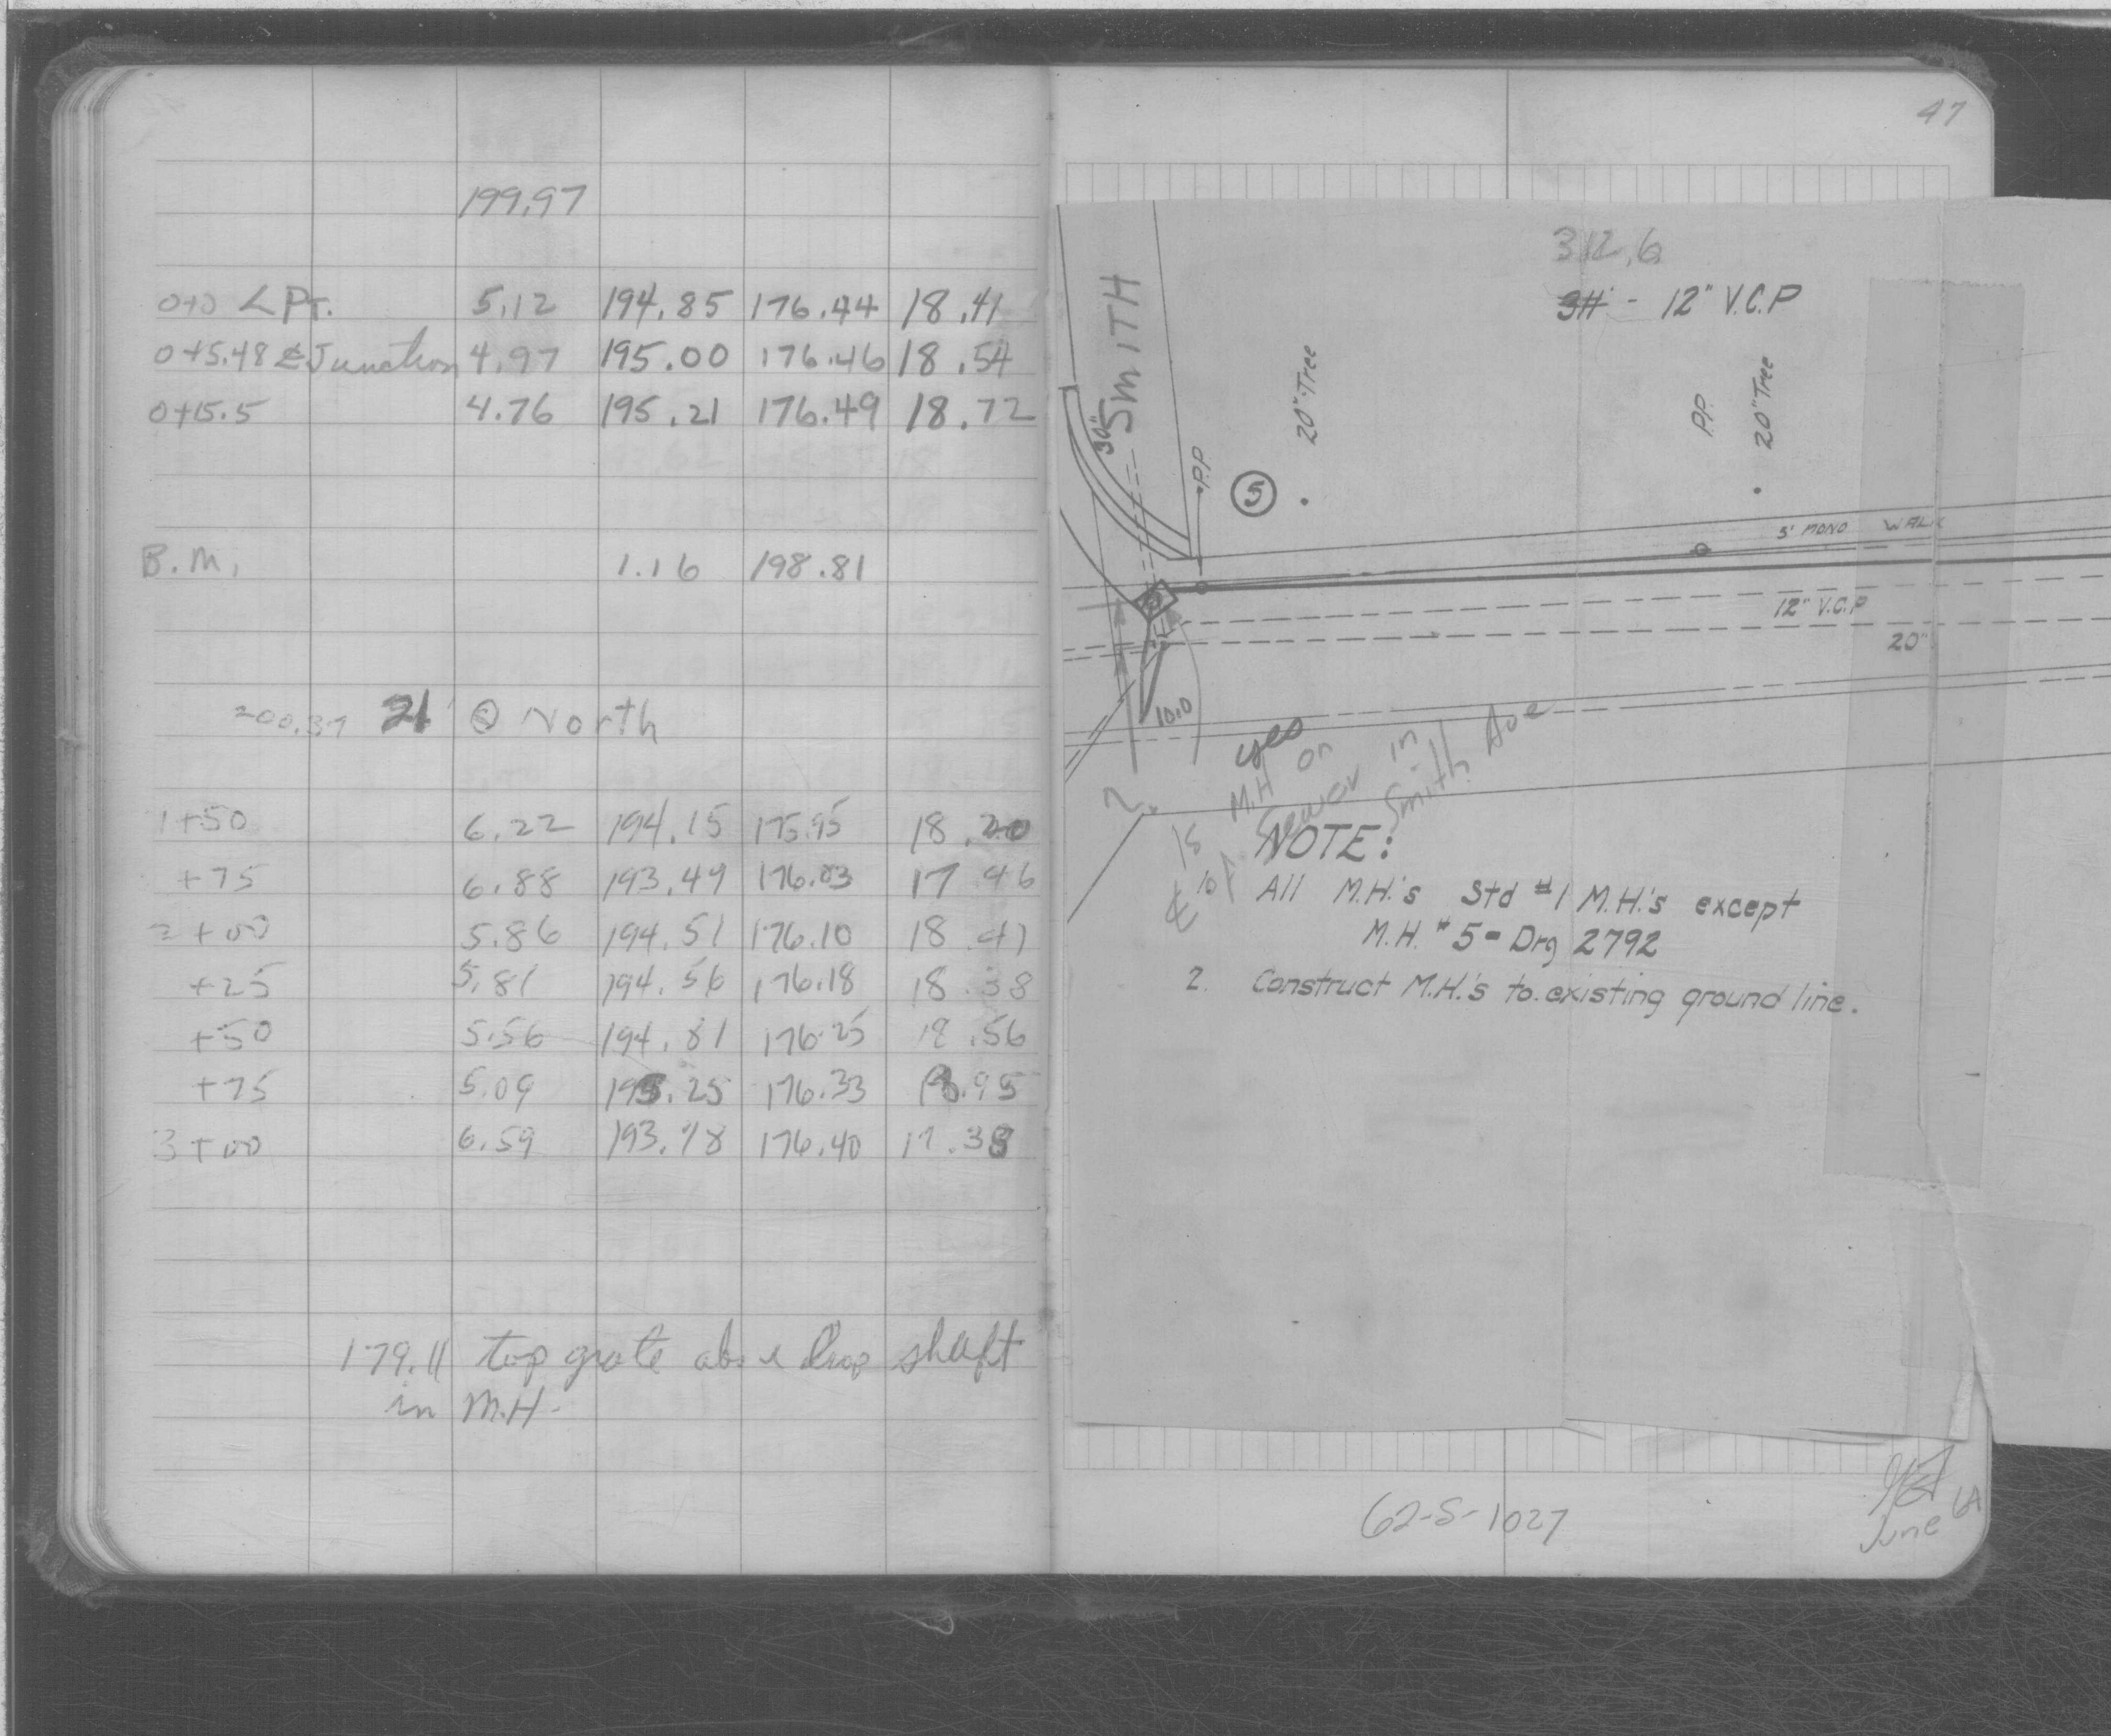 199.97
0+0 < Pt. 5.12 194.85 176.44 18.41
0+5.48 ¢ Junction 4.97 195.00 176.46 18.54
0+15.5 4.76 195.21 176.49 18.72
B.M. 1.16 198.81
200.37 21' @ North
1+50 6.22 194.15 175.95 18.20
+75 6.88 193.49 176.03 17 46
2+00 5.86 194.51 176.10 18.41
+25 5.81 194.56 176.18 18.38
+50 5.56 194.81 176.25 18.56
+75 5.09 195.25 176.33 18.95
3+00 6.59 193.78 176.40 17.38
179.11 top grate above drop shaft
in M.H.
47
312.6
311 - 12" V.C.P
SMITH
30"
20" Tree
P.P.
20" Tree
P.P.
5
5' MONO WALK
12" V.C.P
20"
10.0
yes
Is M.H on
¢ of Sewer in
Smith Ave
?
NOTE:
All M.H.'s Std #1 M.H.'s except
M.H. #5 - Drg 2792
2. Construct M.H.'s to existing ground line.
62-S-1027
June